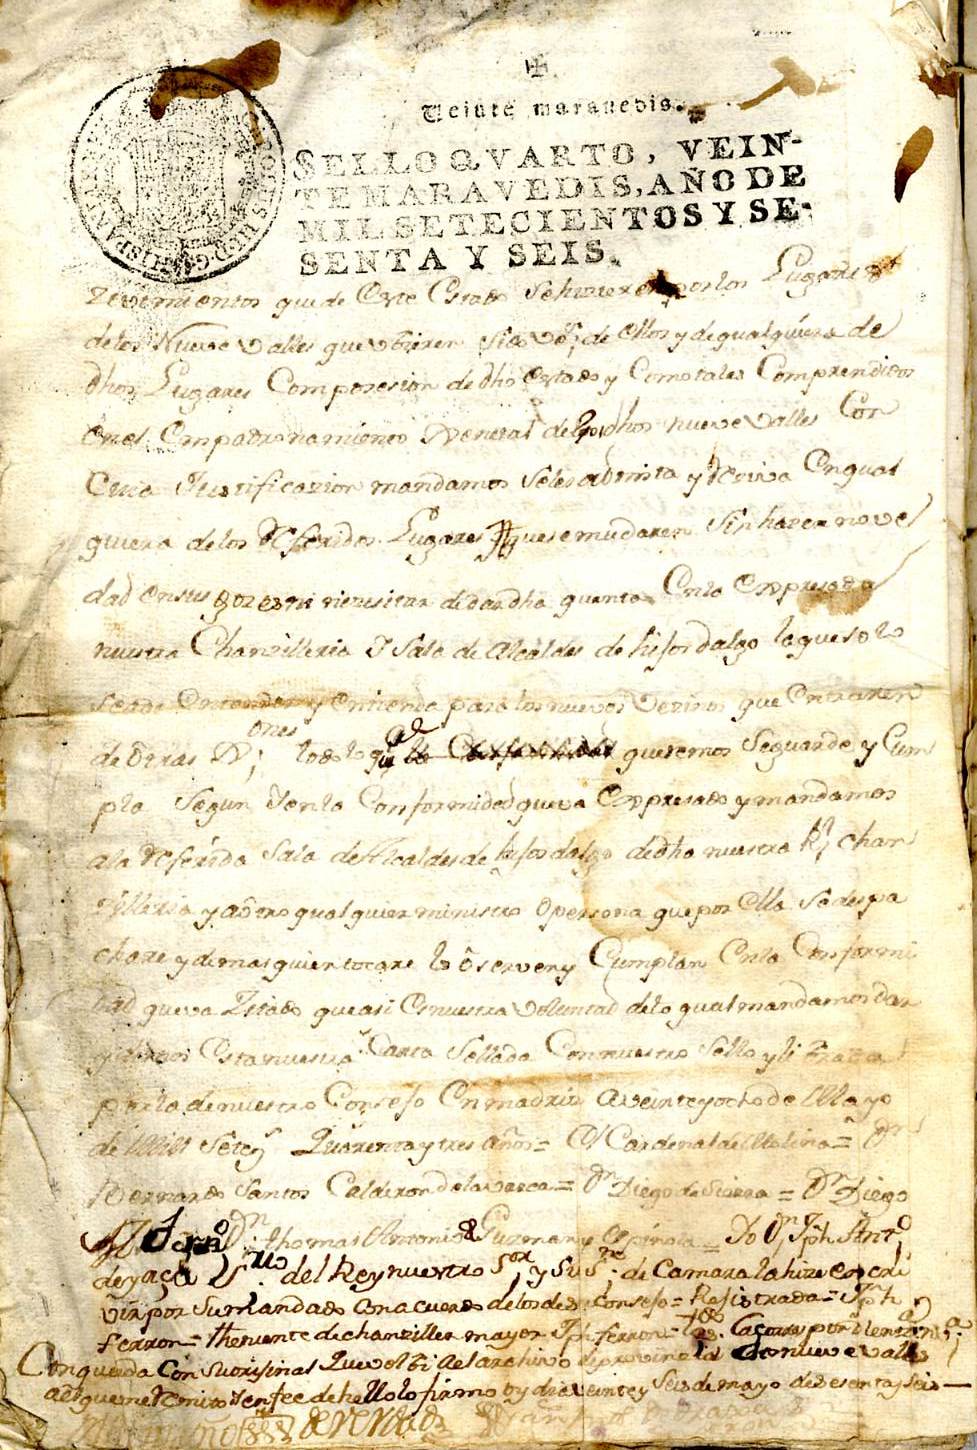 Veinte maravedis.
SELLO QVARTO, VEIN-
TE MARAVEDIS, AÑO DE
MIL SETECIENTOS Y SE-
SENTA Y SEIS.
que de este estado se hizieren por los Lugares
de los Nueve valles que de ellos y de qualquiera de
dhos Lugares Con posesion de dho estado y Como tales Comprendidos
en el Empadronamiento General de los dhos nueve valles Con
Cuia Justificazion mandamos seles admita y Reciva en qual
quiera de los Referidos Lugares que se mudaren sin hazer nove
dad en sus gozes ni nezesitar de dar dha quenta en la expresada
nuestra Chanzilleria y Sala de Alcaldes de hijosdalgo lo que solo
se ade entender y entienda para los nuevos vezinos que entraren
de otras todo lo queremos se guarde y Cum
pla segun y en la Conformidad que va expresado y mandamos
a la Referida Sala de Alcaldes de hijosdalgo de dha nuestra Rl Chan
zilleria y a otro qualquier ministro o persona que por ella se despa
chare y demas quien tocare lo oserven y Cumplan en la Conformi
dad que va que asi es nuestra voluntad de lo qual mandamos dar
y dimos esta nuestra Carta sellada Con nuestro sello y
por lo de nuestro Consejo en madrid a veinte y ocho de Mayo
de mill setez Quarenta y tres años = el Cardenal de Molina = Dn
Bernardo Santos Calderon de la varca = Dn Diego de Sierra = Dn Diego
Dn thomas Antonio de Guzman y Spinola = Yo Dn Jph Antº
de yarza Srio del Rey nuestro Sor y su de Camara la hize escri
vir por su mandado Con acuerdo de los de su consejo = Rejistrada = Jph
ferron = theniente de chanziller mayor Jph ferron =
Conquerda Con su orijinal que volbi al archivo de provinzia de nueve valles
a el que me Remito y en fee de hello lo firmo oy dia veinte y seis de mayo de sesenta y seis
de verdad